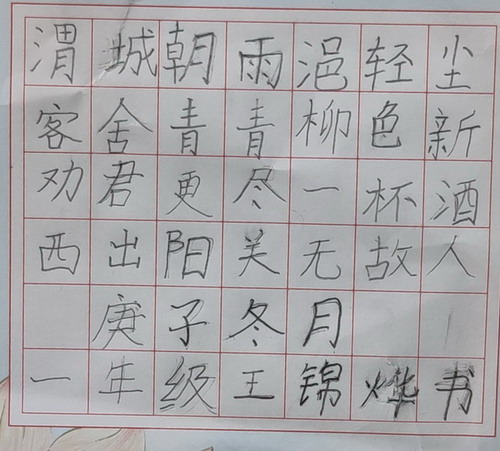 渭城朝雨浥轻尘
客舍青青柳色新
劝君更尽一杯酒
西出阳关无故人
庚子冬月
一年级王锦烨书